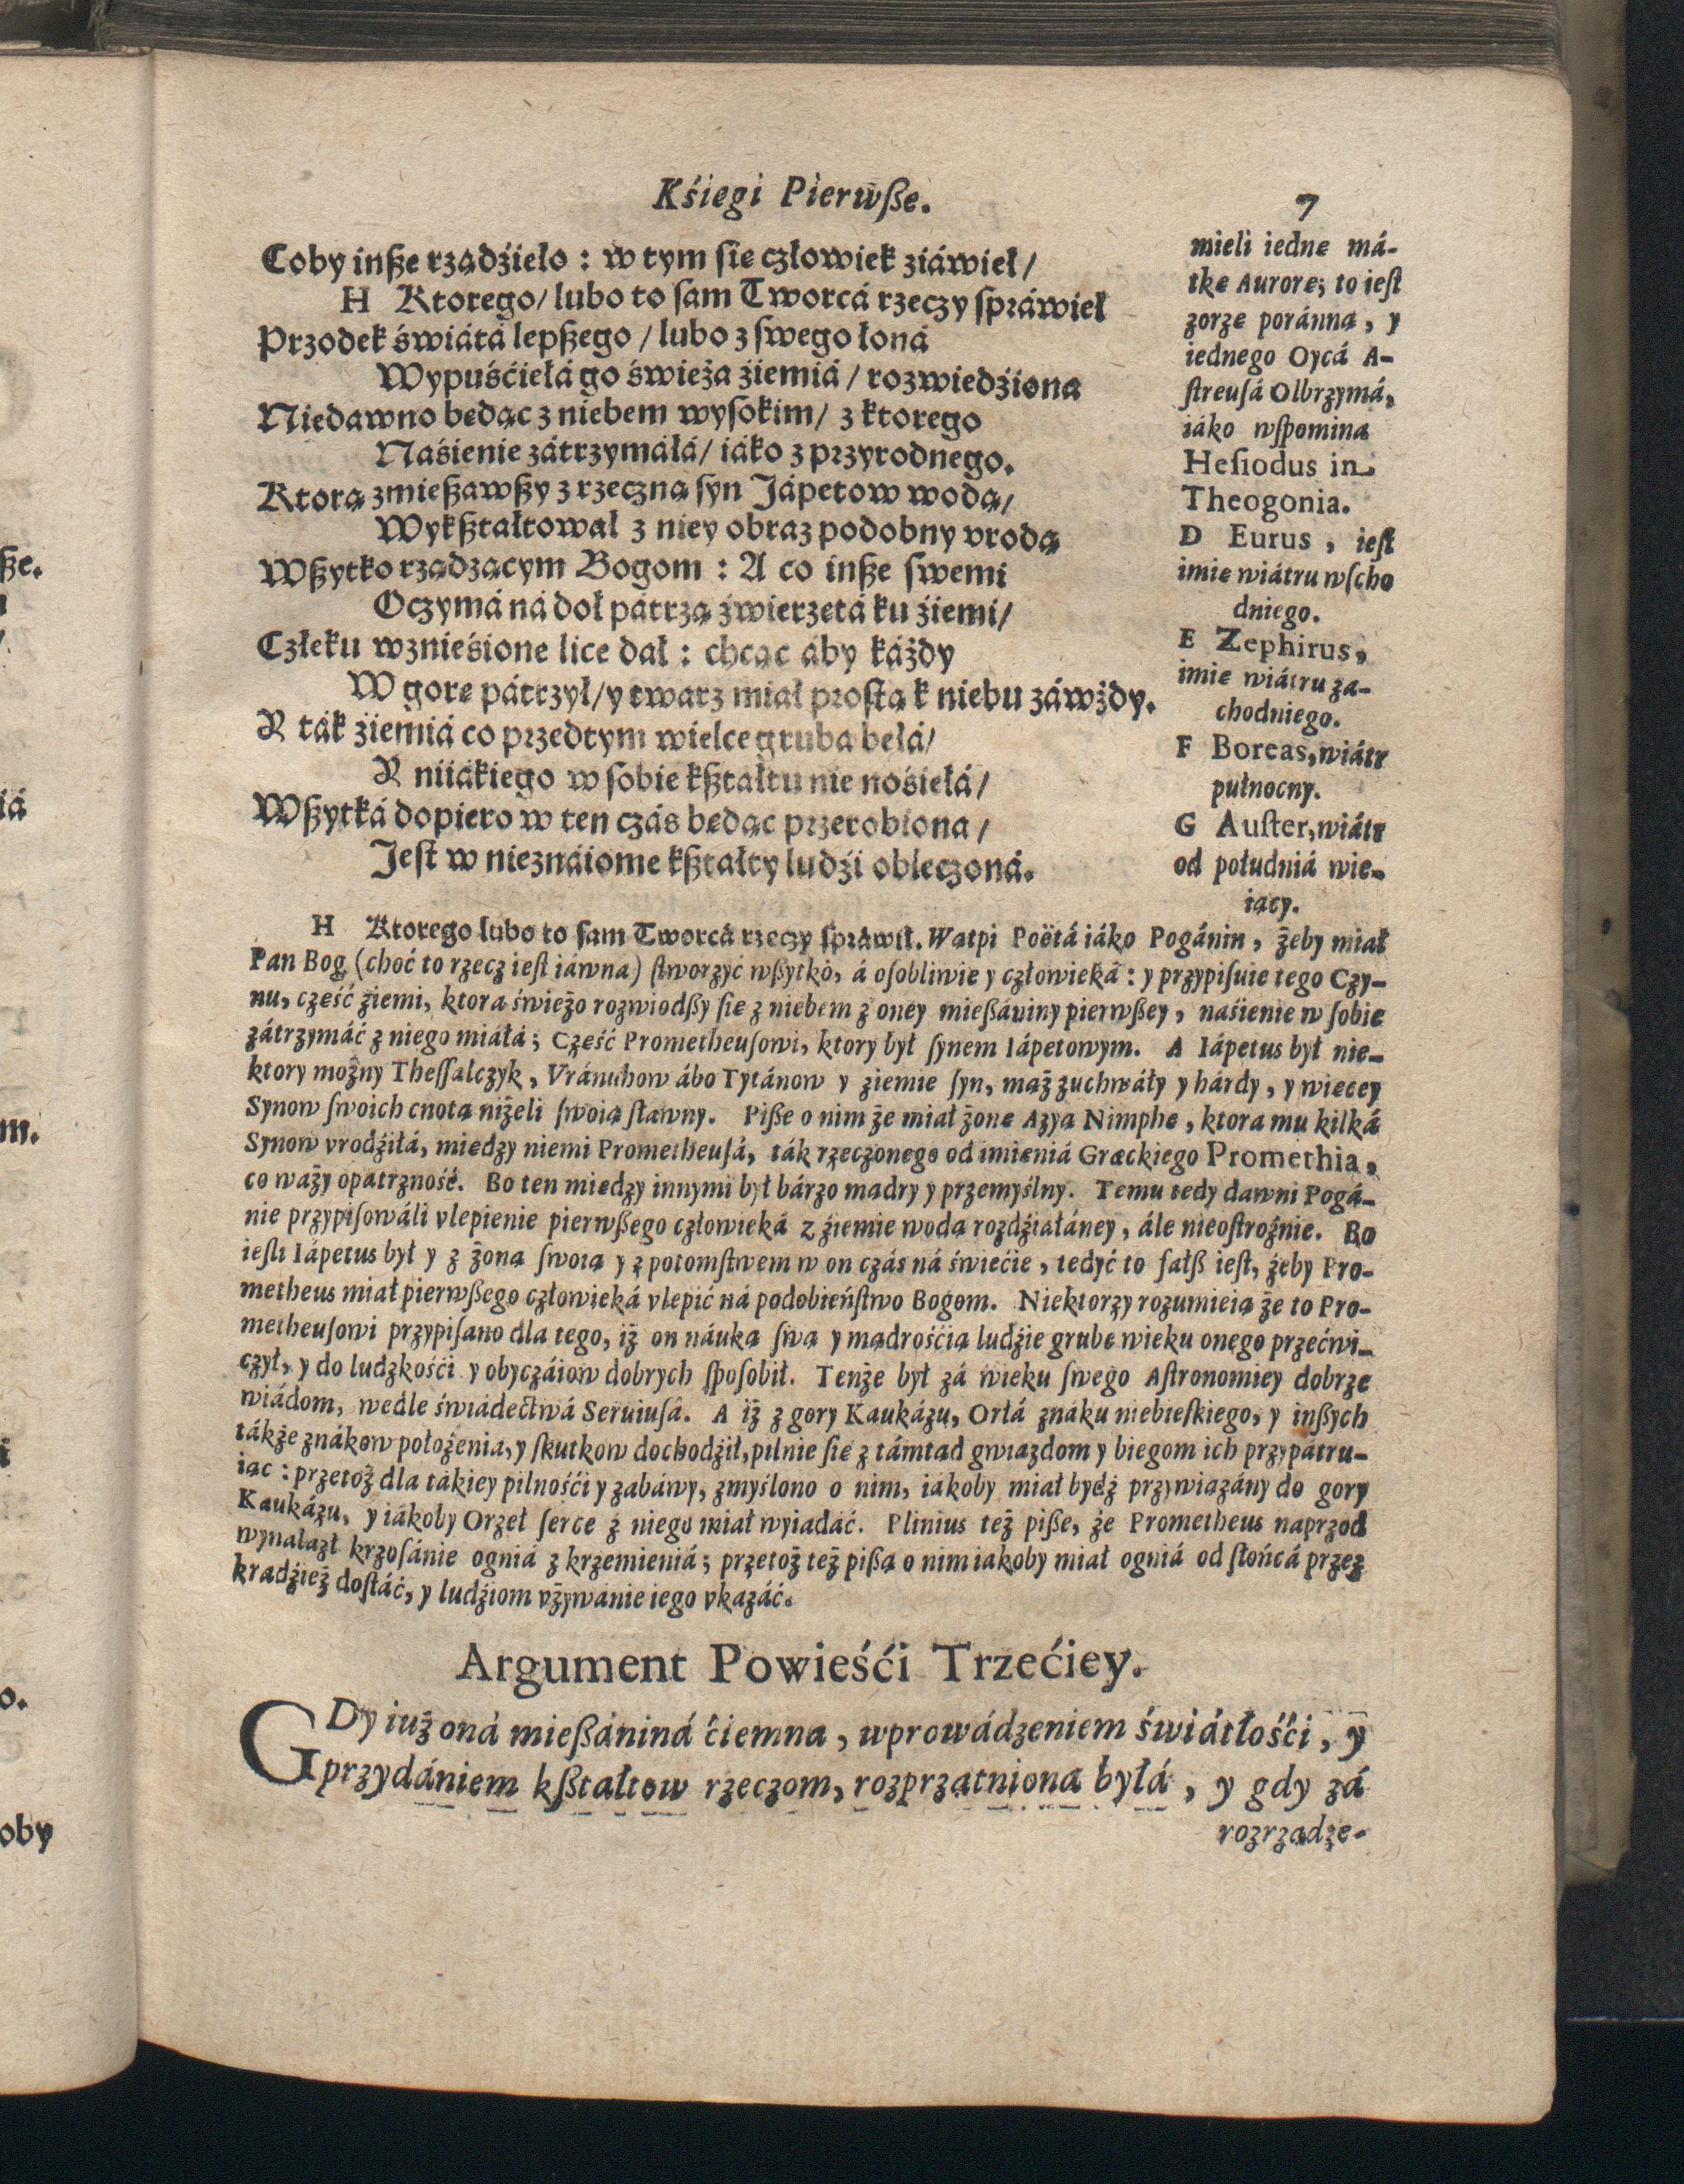 Kśiegi Pierwße.
7
Coby inße rządźieło : w tym ſie człowiek ziáwieł/
H Ktorego/ lubo to ſam Tworcá rzeczy ſpráwieł
Przodek świátá lepßego / lubo z ſwego łoná
Wypuśćiełá go świeża źiemiá / rozwiedźiona
Niedawno bedąc z niebem wyſokim/ z ktorego
Naśienie zátrzymáłá/ iáko z przyrodnego.
Ktorą zmießawßy z rzeczną ſyn Jápetow wodą/
Wykßtałtował z niey obraz podobny vrodą
Wßytko rządzącym Bogom : A co inße ſwemi
Oczymá ná doł pátrzą źwierzetá ku źiemi/
Człeku wznieśione lice dał : chcąc áby káżdy
W gore pátrzył/ y twarz miał proſtą k niebu záwżdy.
Y ták źiemiá co przedtym wielce gruba bełá/
Y niiákiego w ſobie kßtałtu nie nośiełá/
Wßytká dopiero w ten czás bedąc przerobiona /
Jeſt w nieznáiome kßtałty ludźi obleczoná.
mieli iedne má-
tke Aurore; to ieſt
zorze poránna, y
iednego Oycá A-
ſtreuſá Olbrzymá,
iáko wſpomina
Heſiodus in
Theogonia.
D Eurus, ieſt
imie wiátru wſcho
dniego.
E Zephirus,
imie wiátru za-
chodniego.
F Boreas, wiátr
pułnocny.
G Auſter, wiátr
od południá wie-
iący.
H Ktorego lubo to ſam Tworcá rzeczy ſpráwił. Wątpi Poëtá iáko Pogánin, żeby miał
Pan Bog (choć to rzecz ieſt iáwna) ſtworzyć wßytko, á oſobliwie y człowieká : y przypiſuie tego Czy-
nu, cześć źiemi, ktora świeżo rozwiodßy ſie z niebem z oney mießániny pierwßey, naśienie w ſobie
zátrzymáć z niego miáłá; Cześć Prometheuſowi, ktory był ſynem Iápetowym. A Iápetus był nie-
ktory możny Theſſalczyk, Vránuhow ábo Tytánow y źiemie ſyn, mąż zuchwáły y hárdy, y wiecey
Synow ſwoich cnotą niżeli ſwoią ſławny. Piße o nim że miał żone Azya Nimphe, ktora mu kilká
Synow vrodźiłá, miedzy niemi Prometheuſá, ták rzeczonego od imieniá Græckiego Promethia,
co waży opatrzność. Bo ten miedzy innymi był bárzo mądry y przemyślny. Temu tedy dawni Pogá-
nie przypiſowáli vlepienie pierwßego człowieká z źiemie wodą rozdźiałáney, ále nieoſtrożnie. Bo
ieſli Iápetus był y z żoną ſwoią y z potomſtwem w on czás ná świećie, tedyć to fałß ieſt, żeby Pro-
metheus miał pierwßego człowieká vlepić ná podobieńſtwo Bogom. Niektorzy rozumieią że to Pro-
metheuſowi przypiſano dla tego, iż on náuką ſwą y mądrośćią ludźie grube wieku onego przećwi-
czył, y do ludzkośći y obyczáiow dobrych ſpoſobił. Tenże był zá wieku ſwego Aſtronomiey dobrze
wiádom, wedle świádectwá Seruiuſá. A iż z gory Kaukázu, Orłá znáku niebieſkiego, y inßych
tákże znákow położenia, y ſkutkow dochodźił, pilnie ſie z támtad gwiazdom y biegom ich przypátru-
iąc : przetoż dla tákiey pilnośći y zabáwy, zmyślono o nim, iákoby miał bydź przywiązány do gory
Kaukázu, y iákoby Orzeł ſerce z niego miał wyiadáć. Plinius też piße, że Prometheus naprzod
wynalazł krzoſánie ogniá z krzemieniá; przetoż też pißą o nim iakoby miał ogniá od ſłońcá przez
kradźież doſtáć, y ludźiom vżywanie iego vkazáć.
Argument Powieśći Trzećiey.
GDy iuż oná mießániná ćiemna, wprowádzeniem świátłośći, y
przydániem kßtałtow rzeczom, rozprzątniona byłá, y gdy zá
rozrządze-